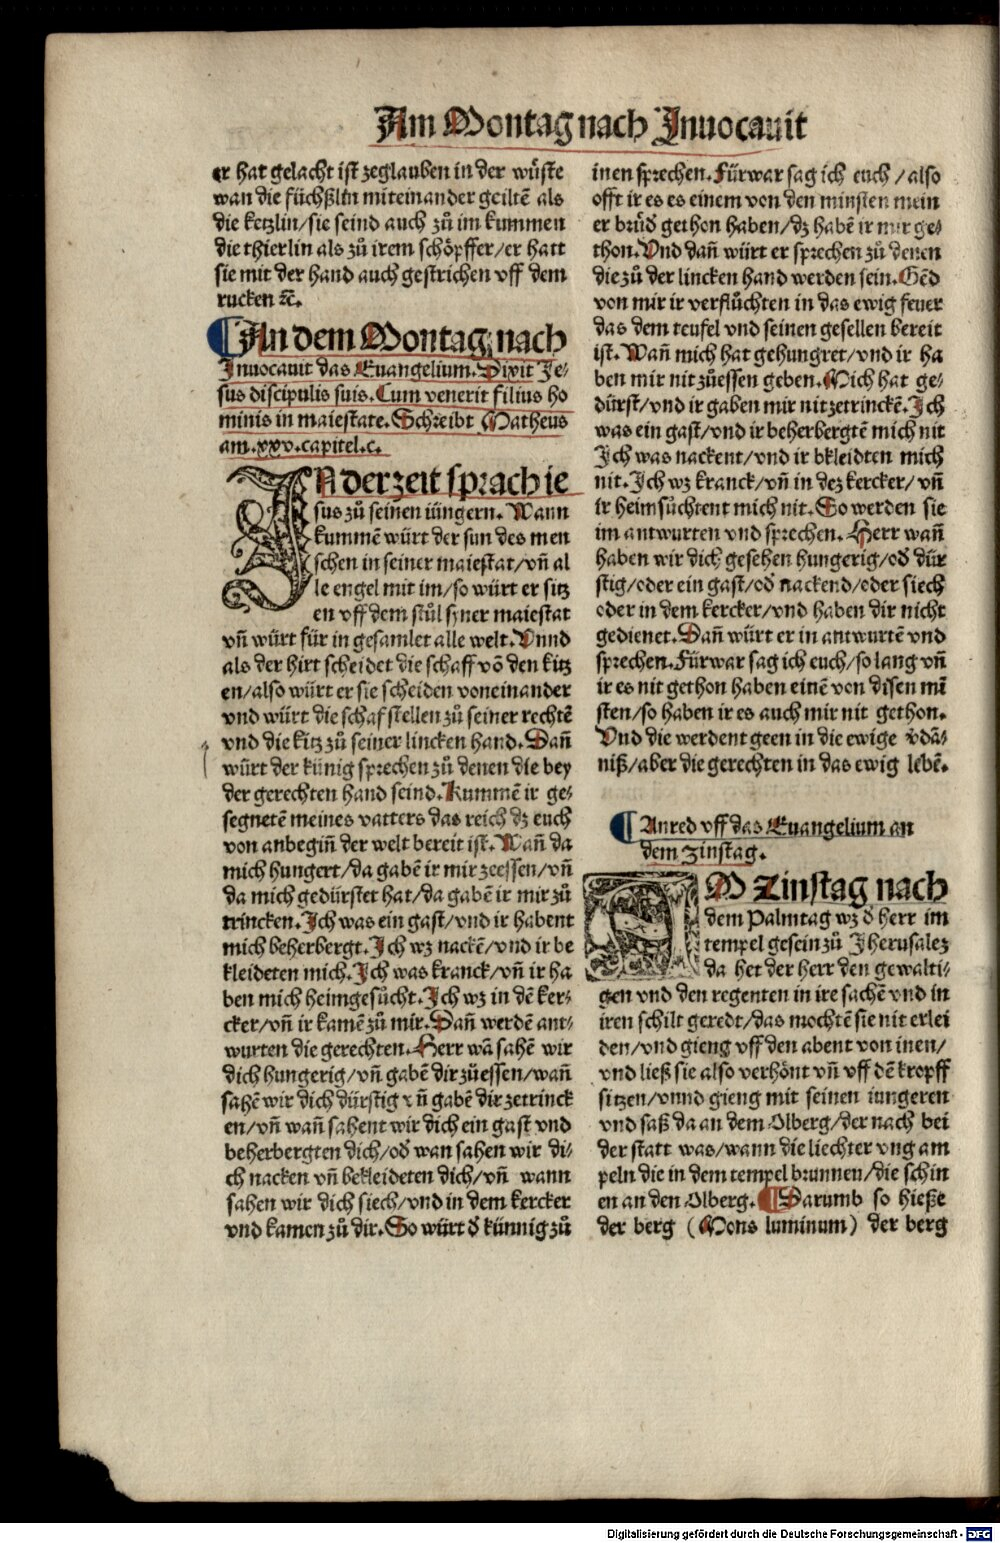 Am Montag nach Inuocauit
er hat gelacht ist zeglauben in der wuͤste
wan die fuͤchßlin miteinander geiltē als
die ketzlin/sie seind auch zuͦ im kummen
die thierlin als zuͦ irem schoͤpffer/er hatt
sie mit der hand auch gestrichen vff dem
rucken ⁊c̄.
¶ An dem Montag nach
Inuocauit das Euangelium. Dixit Je-
sus discipulis suis. Cum venerit filius ho
minis in maiestate. Schreibt Matheus
am .xxv. capitel .c.
IN der zeit sprach ie
sus zuͦ seinen iüngern. Wann
kummē würt der sun des men
schen in seiner maiestat/vn̄ al
le engel mit im/so würt er sitz
en vff dem stuͦl syner maiestat
vn̄ würt für in gesamlet alle welt. Vnnd
als der hirt scheidet die schaff vō den kitz
en/also würt er sie scheiden voneinander
vnd würt die schaf stellen zuͦ seiner rechtē
vnd die kitz zuͦ seiner lincken hand. Dañ
würt der künig sprechen zuͦ denen die bey
der gerechten hand seind. Kummē ir ge-
segnetē meines vatters das reich dz euch
von anbegiñ der welt bereit ist. Wañ da
mich hungert/da gabē ir mir zeessen/vn̄
da mich gedürstet hat/da gabē ir mir zuͦ
trincken. Ich was ein gast/vnd ir habent
mich beherbergt. Ich wz nackē/vnd ir be
kleideten mich. Ich was kranck/vn̄ ir ha
ben mich heimgesuͦcht. Ich wz in dē ker-
cker/vn̄ ir kamē zuͦ mir. Dañ werdē ant-
wurten die gerechten. Herr wā sahē wir
dich hungerig/vn̄ gabē dir zuͦessen/wañ
sahē wir dich dürstig vn̄ gabē dir zetrinck
en/vn̄ wañ sahent wir dich ein gast vnd
beherbergten dich/od̄ wan sahen wir di-
ch nacken vn̄ bekleideten dich/vn̄ wann
sahen wir dich siech/vnd in dem kercker
vnd kamen zuͦ dir. So würt d̄ künnig zuͦ
inen sprechen. Fürwar sag ich euch/also
offt ir es es einem von den minsten mein
er bruͤd̄ gethon haben/dz habē ir mir ge-
thon. Vnd dañ würt er sprechen zuͦ denen
die zuͦ der lincken hand werden sein. Gēd
von mir ir verfluͦchten in das ewig feuer
das dem teufel vnd seinen gesellen bereit
ist. Wañ mich hat gehungret/vnd ir ha
ben mir nit zuͦessen geben. Mich hat ge-
dürst/vnd ir gaben mir nit zetrinckē. Ich
was ein gast/vnd ir beherbergtē mich nit
Ich was nackent/vnd ir bkleidten mich
nit. Ich wz kranck/vn̄ in dez kercker/vn̄
ir heimsuͦchtent mich nit. So werden sie
im antwurten vnd sprechen. Herr wañ
haben wir dich gesehen hungerig/od̄ dür
stig/oder ein gast/od̄ nackend/oder siech
oder in dem kercker/vnd haben dir nicht
gedienet. Dañ würt er in antwurtē vnd
sprechen. Fürwar sag ich euch/so lang vn̄
ir es nit gethon haben einē von disen mī
sten/so haben ir es auch mir nit gethon.
Vnd die werdent geen in die ewige vdā-
niß/aber die gerechten in das ewig lebē.
¶ Anred vff das Euangelium an
dem zinstag.
AM Zinstag nach
dem Palmtag wz d̄ herr im
tempel gesein zuͦ Jherusalez
da het der herr den gewalti-
gen vnd den regenten in ire sachē vnd in
iren schilt geredt/das mochtē sie nit erlei
den/vnd gieng vff den abent von inen/
vnd ließ sie also verhoͤnt vn̄ vff dē kropff
sitzen/vnnd gieng mit seinen iungeren
vnd saß da an dem Olberg/der nach bei
der statt was/wann die liechter vng am
peln die in dem tempel brunnen/die schin
en an den Olberg. ¶ Darumb so hieße
der berg (Mons luminum) der berg
Digitalisierung gefördert durch die Deutsche Forschungsgemeinschaft - DFG